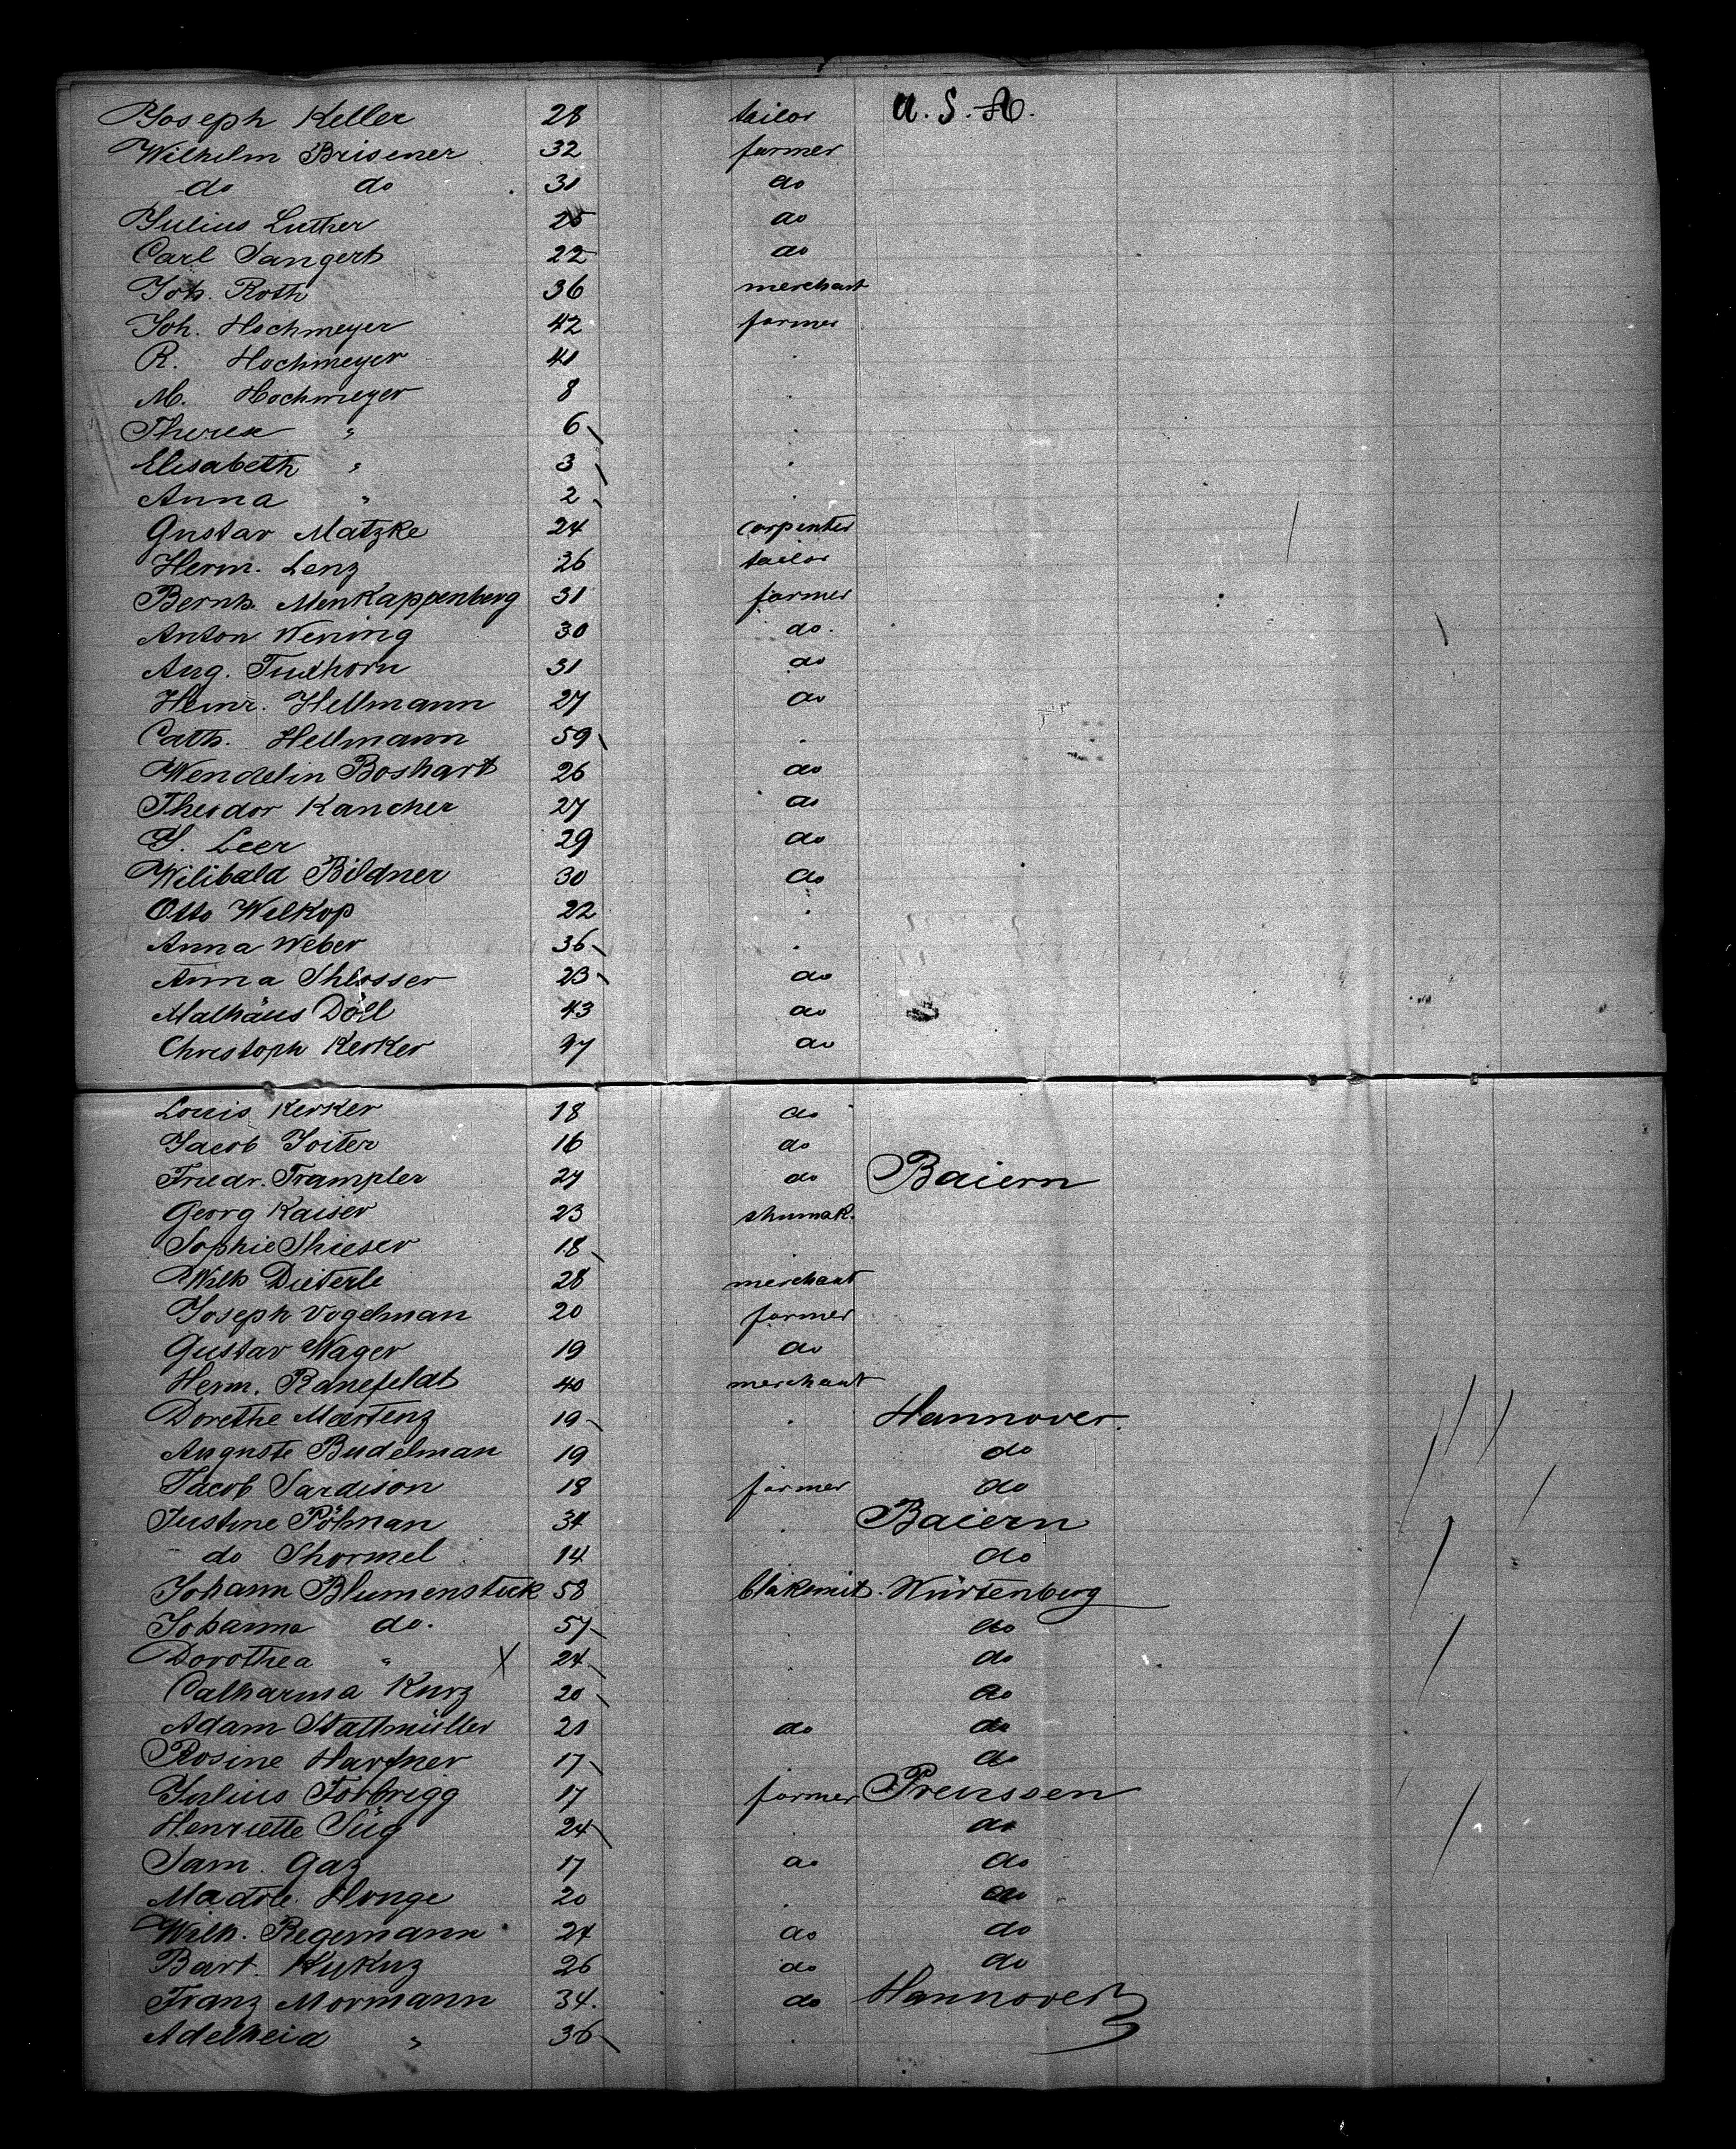 Joseph Keller 28 tailor U.S.A.
Wilhelm Brisener 32 farmer
do do 31 do
Julius Luther 25 do
Carl Sangert 22 do
Joh. Roth 36 merchant
Joh. Hochmeyer 42 farmer
R. Hochmeyer 41
M. Hochmeyer 8
Therese " 6
Elisabeth " 3
Anna " 2
Gustav Matzke 24 carpenter
Herm. Lenz 26 tailor
Bernh. Menkappenberg 31 farmer
Anton Wening 30 do.
Aug. 31 do
Heinr. Hellmann 27 do
Cath. Hellmann 59
Wendelin Boshart 26 do
Theodor Kancher 27 do
J. Leer 29 do
Wilibald Bildner 30 do
Otto Welkop 22
Anna Weber 36
Anna Shlosser 23 do
Mathäus Döll 43 do
Christoph Kerker do
Louis Kerker 18 do
Jacob Joiter 16 do
Friedr. Trampler 27 do Baiern
Georg Kaiser 23 shumak.
Sophie Shieser 18
Wilh Dieterle 28 merchant
Joseph Vogelman 20 farmer
Gustav Wager 19 do
Herm. Ranefeldt 40 merchant
Dorethe Martenz 19 Hannover.
Auguste Budelman 19 do
Jacob Sardison 18 farmer do
Justine Pölman 34 Baiern
do Shormel 14 do
Johann Blumenstick 58 blaksmit. Würtenberg
Johanna do. 57 do
Dorothea " X 24 do
Catharina Kurz 20 do
Adam Stattmüller 21 do do
Rosine Harfner 17 do
Julius Forbrigg 17 farmer Preussen
Henriette Süg 24 do
Sam. Gaz 17 do do
Honge 20 do
Wilh. Regemann 24 do do
Bart. Kukuz 26 do do
Franz Mormann 34. do Hannover
Adelheid " 36